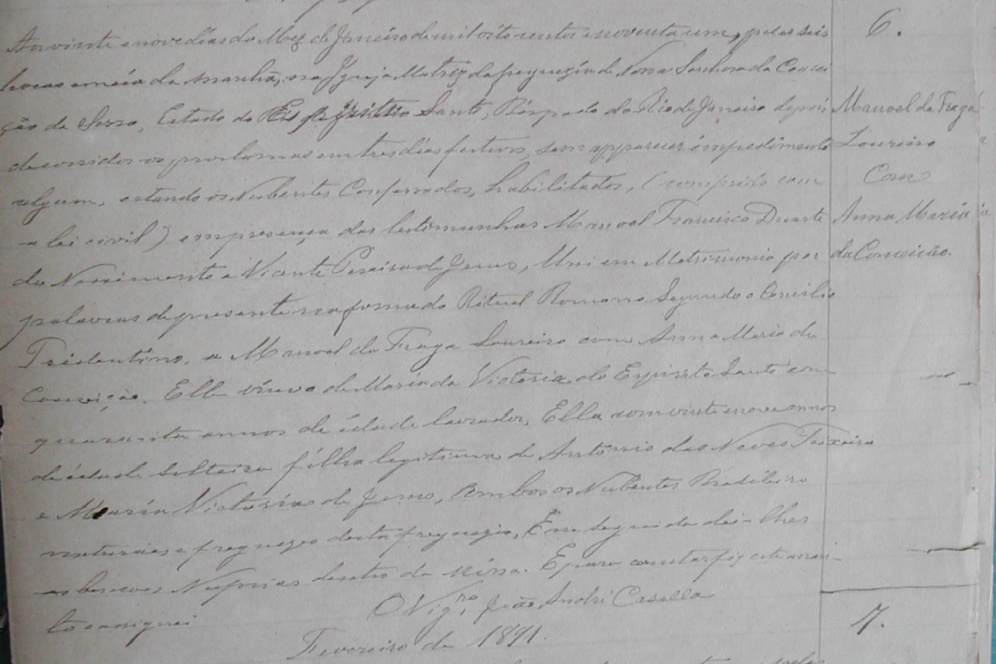 6.
Aos vinte e nove dias do Mez de Janeiro de mil oito centos e noventa e um, pelas seis
horas e meia da manhã, na Igreja Matriz da freguezia de Nossa Senhora da Concei
ção da Serra, Estado do Espirito Santo, Bispado do Rio de Janeiro depois
de corridos os proclamas em tres dias festivos, sem apparecer impedimento
algum, estando os Nubentes Confessados, habilitados, (cumprido com
a lei civil) em presença das testimunhas Manoel Francisco Duarte
do Nascimento e Vicente Pereira de Jesus, Uni em Matrimonio por
palavras de presente na forma do Ritual Romano Segundo o Concilio
Tridentino, a Manoel da Fraga Loureiro com Anna Maria da
Conceição. Elle viuvo de Maria da Victoria do Espirito Santo com
quarenta annos de idade lavrador, Ella com vinte e nove annos
de idade solteira filha legitima de Antonio das Neves Teixeira
e Maria Victoria de Jesus, Ambos os Nubentes Brasileiros
naturaes e freguezes desta freguezia, Em seguida dei-lhes
as bençoes Nupcias dentro da Missa. E para constar fiz este assen-
to e assignei
O Vigro. João André Casella
Fevereiro de 1891.
Manoel da Fraga
Loureiro
Com
Anna Maria
da Conceicão.
7.